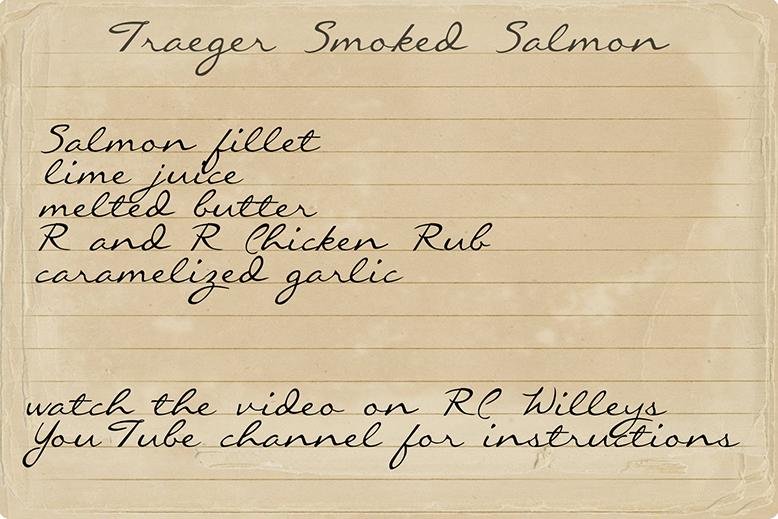 Traeger Smoked Salmon
Salmon fillet
lime juice
melted butter
R and R Chicken Rub
caramelized garlic
watch the video on RC Willeys
YouTube channel for instructions